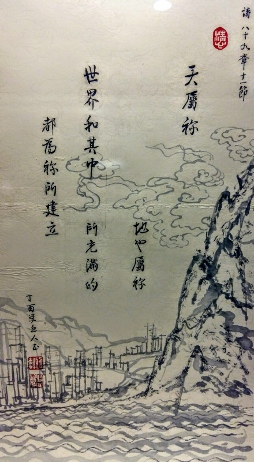 詩八十九章十一節
天屬祢
地也屬祢
世界和其中
所充滿的
都為祢所建立
丁酉